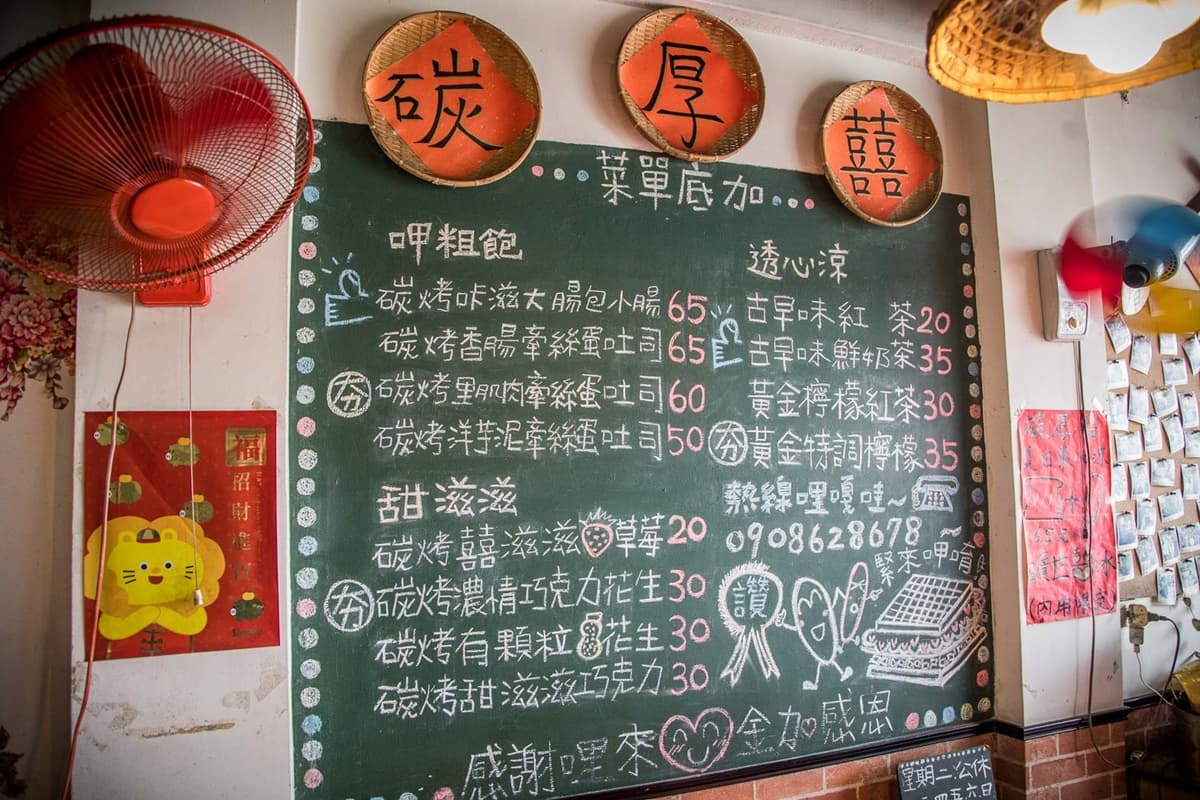 碳
厚
囍
菜單底加
呷粗飽
碳烤咔滋大腸包小腸 65
碳烤香腸牽絲蛋吐司 65
夯 碳烤里肌肉牽絲蛋吐司 60
碳烤洋芋泥牽絲蛋吐司 50
甜滋滋
碳烤囍滋滋草莓 20
夯 碳烤濃情巧克力花生 30
碳烤有顆粒花生 30
碳烤甜滋滋巧克力 30
透心涼
古早味紅 茶 20
古早味鮮奶茶 35
黃金檸檬紅茶 30
夯 黃金特調檸檬 35
熱線哩嘎哇~
0908628678
緊來呷唷~
讚
感謝哩來金加感恩
福
招財進寶
星期二公休